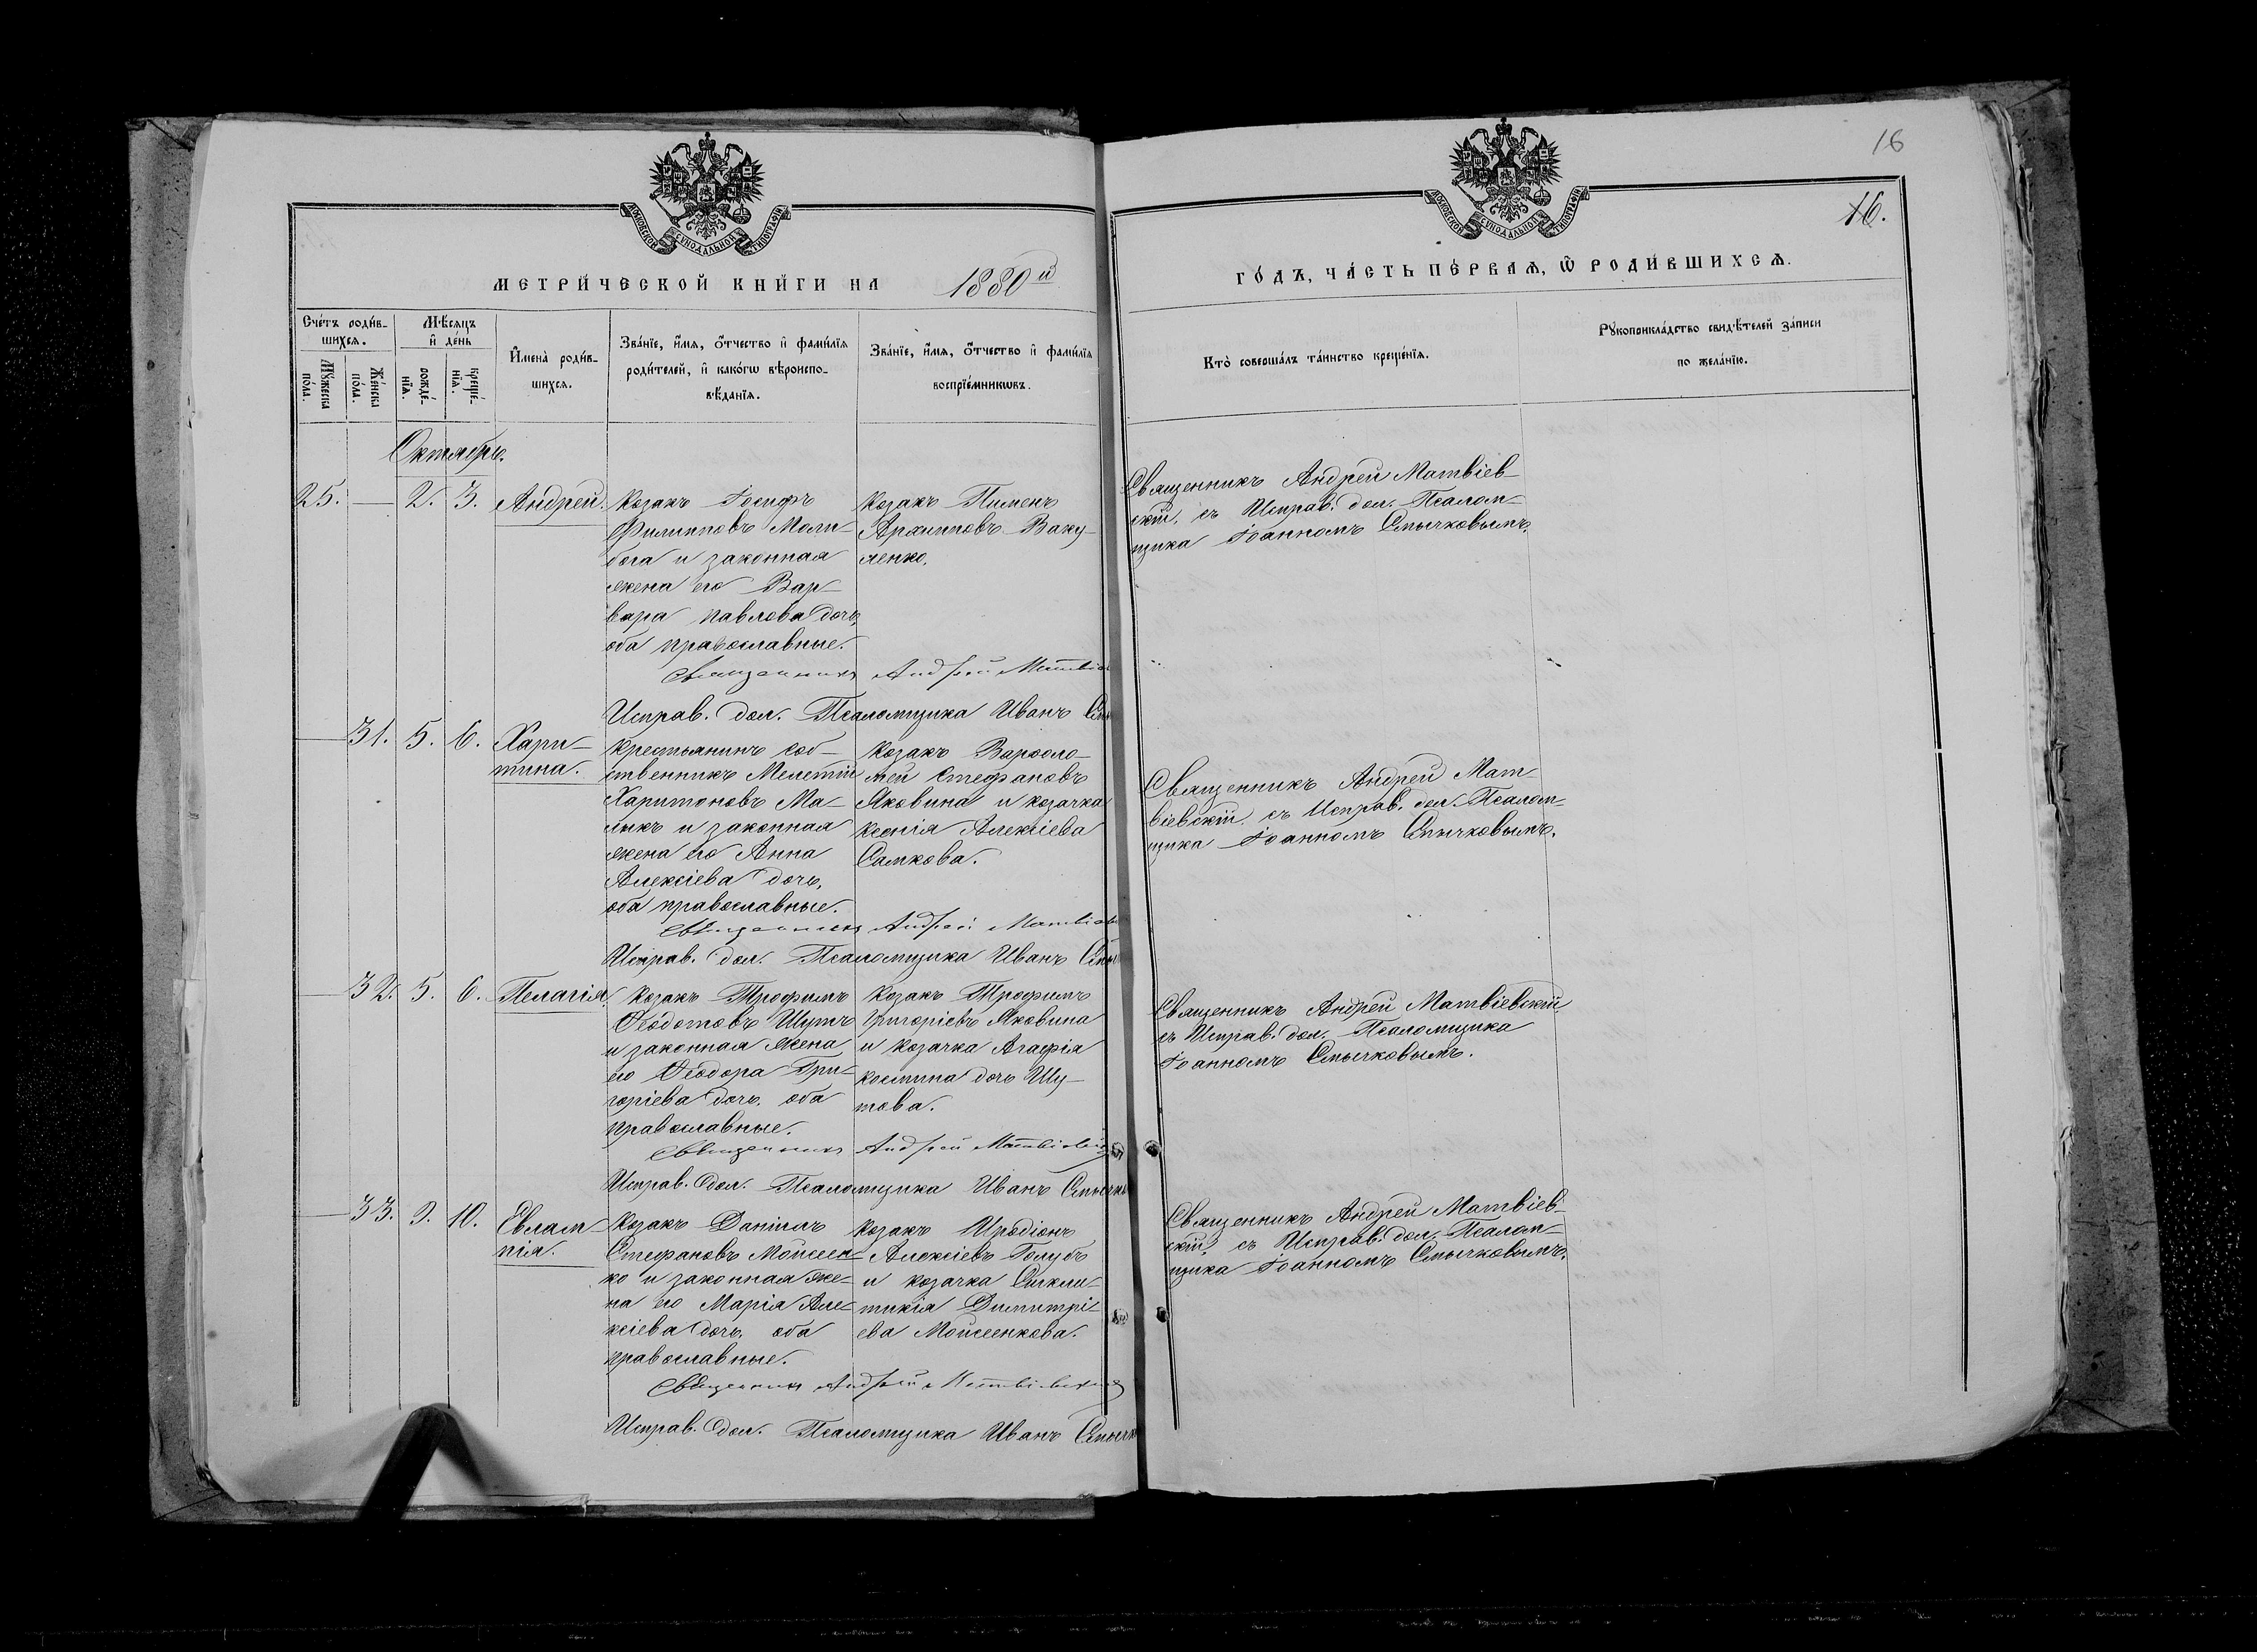 16
16.
МОСКОВСКОЙ СѴНОДАЛЬНОЙ ТИПОГРАФІИ
МОСКОВСКОЙ СѴНОДАЛЬНОЙ ТИПОГРАФІИ
МЕТРИ́ЧЕСКОЙ КНИ́ГИ НА 1880й
ГО́ДЪ, ЧА́СТЬ ПЕ́РВАЯ, Ѽ РОДИ́ВШИХСЯ.
Сче́тъ роди́в-
шихся.
Му́жеска
по́ла.
Же́нска
по́ла.
Мѣ́сяцъ
и҆ де́нь
рожде́-
нїа.
креще́-
нїа.
И҆мена̀ роди́в-
шихся.
Зва́нїе, и҆́мя, о҆́тчество и҆ фами́лїя
роди́телей, и҆ како́гѡ вѣроиспо-
вѣ́данїя.
Зва́нїе, и҆́мя, о҆́тчество и҆ фами́лїя
воспрїе́мникѡвъ.
Кто̀ соверша́лъ та́инство креще́нїя.
Рꙋкоприкла́дство свидѣ́телей за́писи
по жела́нїю.
Октябрь.
25. — 2. 3. Андрей.
Козакъ Іосифъ
Филипповъ Моли-
бога и законная
жена его Вар-
вара Павлова дочь,
оба православные.
Козакъ Пименъ
Архиповъ Ваку-
ленко.
Священникъ Андрей Матвіев-
скій, съ Исправ. дол. Псалом-
щика Іоанномъ Смычковымъ.
Священникъ Андрей Матвіев
Исправ. дол. Псаломщика Иванъ См
— 31. 5. 6. Хари-
тина.
Крестьянинъ соб-
ственникъ Мелетій
Харитоновъ Ма-
лыкъ и законная
жена его Анна
Алексіева дочь,
оба православные.
Козакъ Варѳоло-
мей Стефановъ
Яковина и козачка
Ксенія Алексіева
Самкова.
Священникъ Андрей Мат-
віевскій, съ Исправ. дол. Псалом-
щика Іоанномъ Смычковымъ.
Священникъ Андрей Матвіев
Исправ. дол. Псаломщика Иванъ Смы
— 32. 5. 6. Пелагія.
Козакъ Трофимъ
Ѳеодотовъ Шутъ
и законная жена
его Ѳеодора Гри-
горіева дочь, оба
православные.
Козакъ Трофимъ
Григоріевъ Яковина
и козачка Агафія
Костина дочь Шу-
това.
Священникъ Андрей Матвіевскій
съ Исправ. дол. Псаломщика
Іоанномъ Смычковымъ.
Священникъ Андрей Матвіевскій
Исправ. дол. Псаломщика Иванъ Смычко
— 33. 9. 10. Евлам-
пія.
Козакъ Даніилъ
Стефановъ Моисеен-
ко и законная же-
на его Марія Але-
ксіева дочь, оба
православные.
Козакъ Иродіонъ
Алексіевъ Голубъ
и козачка Сикли-
тикія Димитрі-
ева Моисеенкова.
Священникъ Андрей Матвіев-
скій, съ Исправ. дол. Псалом-
щика Іоанномъ Смычковымъ.
Священникъ Андрей Матвіевскій
Исправ. дол. Псаломщика Иванъ Смычк